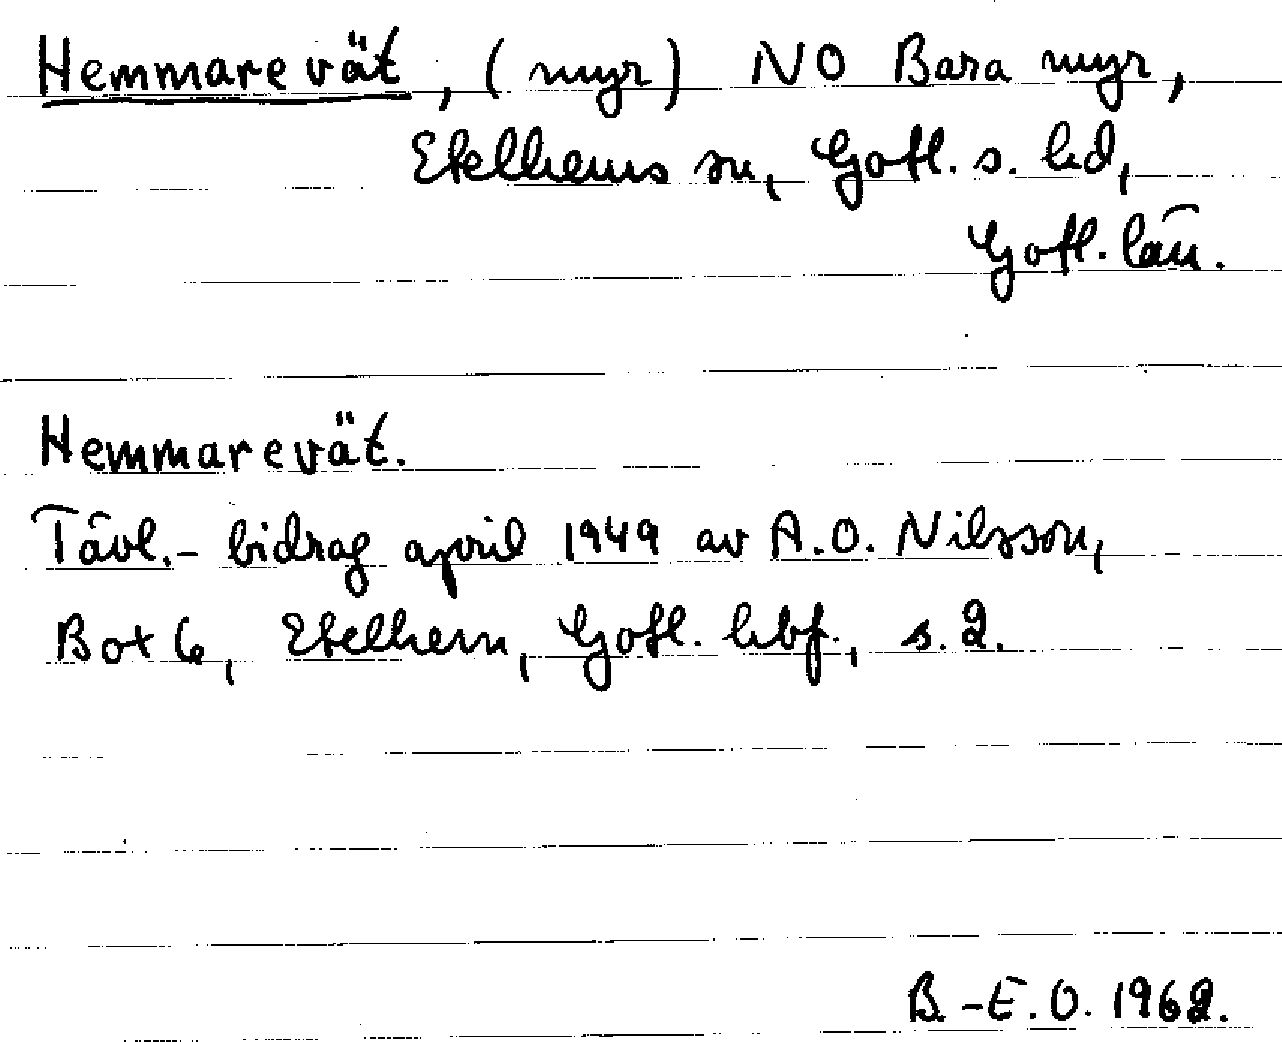 Hemmarevät, (myr) NO Bara myr,
Etelhems sn, Gotl. s. hd,
Gotl. län.
Hemmarevät.
Tävl.- bidrag april 1949 av A.O. Nilsson,
Box 6, Etelhem, Gotl. hbf., s. 2.
B.-E.O. 1962.